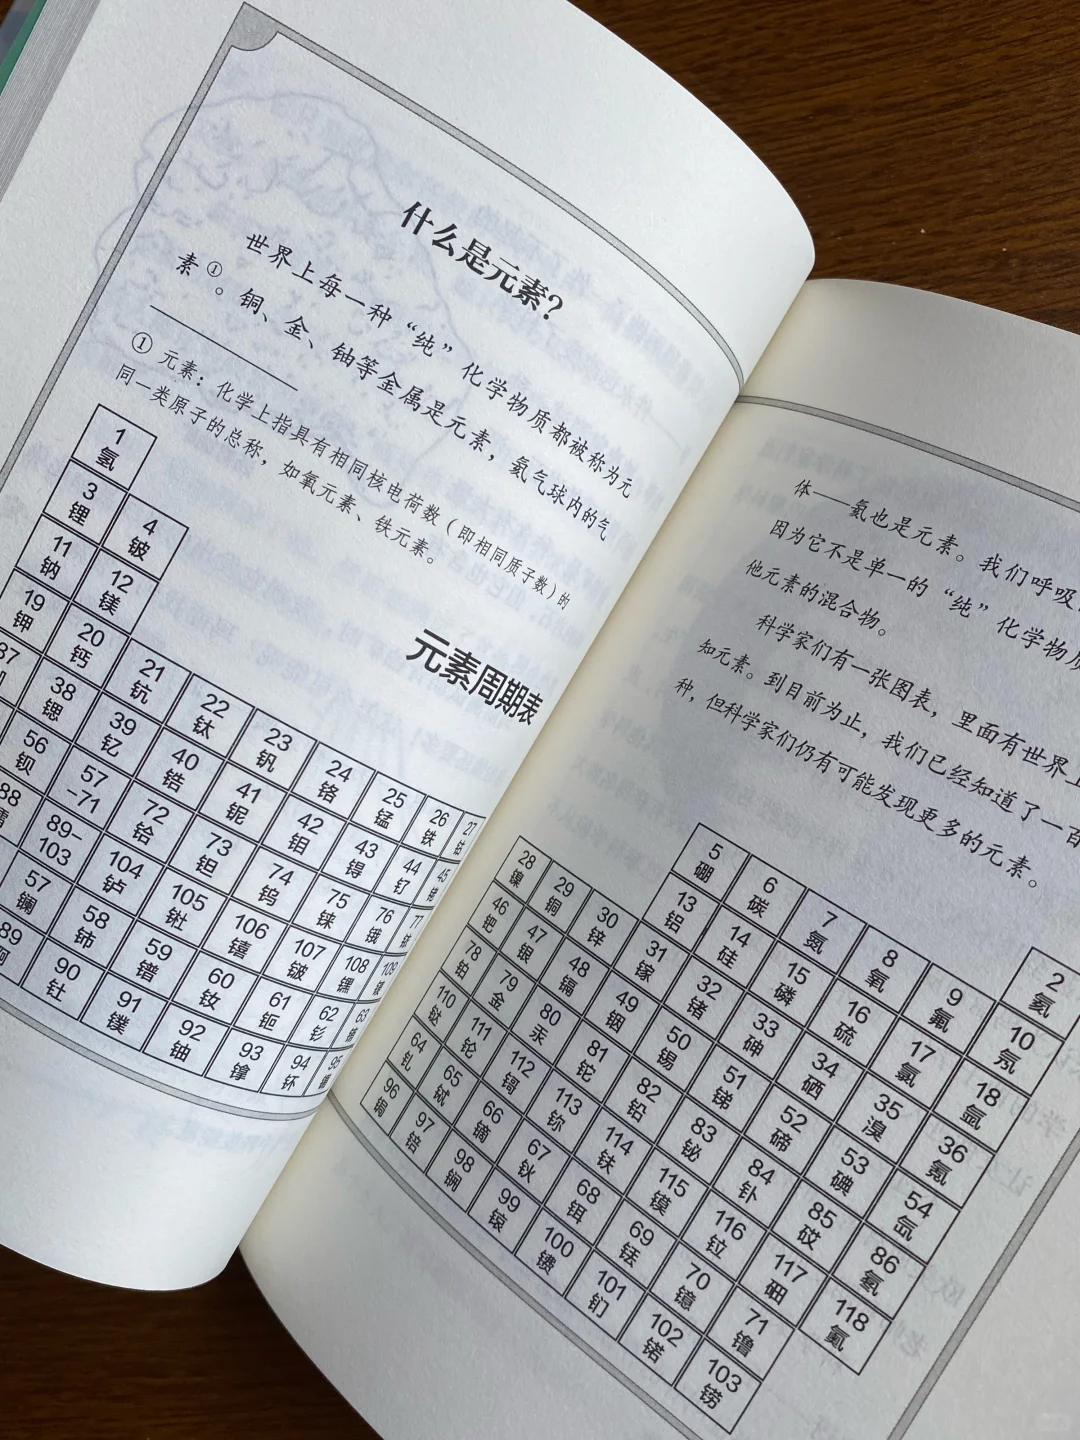 什么是元素？
世界上每一种“纯”化学物质都被称为元
素①。铜、金、铀等金属是元素，氦气球内的气
① 元素：化学上指具有相同核电荷数（即相同质子数）的
同一类原子的总称，如氧元素、铁元素。
元素周期表
1 氢
3 锂 4 铍
11 钠 12 镁
19 钾 20 钙 21 钪 22 钛 23 钒 24 铬 25 锰 26 铁 27 钴
38 锶 39 钇 40 锆 41 铌 42 钼 43 锝 44 钌 45 铑
56 钡 57-71 72 铪 73 钽 74 钨 75 铼 76 锇 77 铱
88 镭 89-103 104 𬬻 105 𬭊 106 𬭳 107 𬭛 108 𬭶 109
57 镧 58 铈 59 镨 60 钕 61 钷 62 钐 63
89 锕 90 钍 91 镤 92 铀 93 镎 94 钚 95
体——氦也是元素。我们呼吸
因为它不是单一的“纯”化学物质
他元素的混合物。
科学家们有一张图表，里面有世界上
知元素。到目前为止，我们已经知道了一百
种，但科学家们仍有可能发现更多的元素。
2 氦
5 硼 6 碳 7 氮 8 氧 9 氟 10 氖
13 铝 14 硅 15 磷 16 硫 17 氯 18 氩
28 镍 29 铜 30 锌 31 镓 32 锗 33 砷 34 硒 35 溴 36 氪
46 钯 47 银 48 镉 49 铟 50 锡 51 锑 52 碲 53 碘 54 氙
78 铂 79 金 80 汞 81 铊 82 铅 83 铋 84 钋 85 砹 86 氡
110 𫟼 111 𬬭 112 鿔 113 鿭 114 𫓧 115 镆 116 𫟷 117 鿬 118 鿫
64 钆 65 铽 66 镝 67 钬 68 铒 69 铥 70 镱 71 镥
96 锔 97 锫 98 锎 99 锿 100 镄 101 钔 102 锘 103 铹